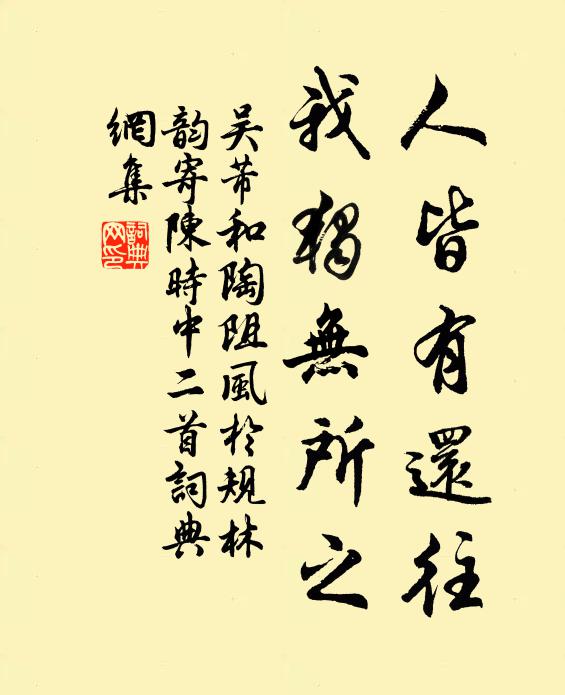 人皆有還往
我獨無所之
吳芾和陶阻風於規林
韵寄陳時中二首詞典
網集
詞典
网印